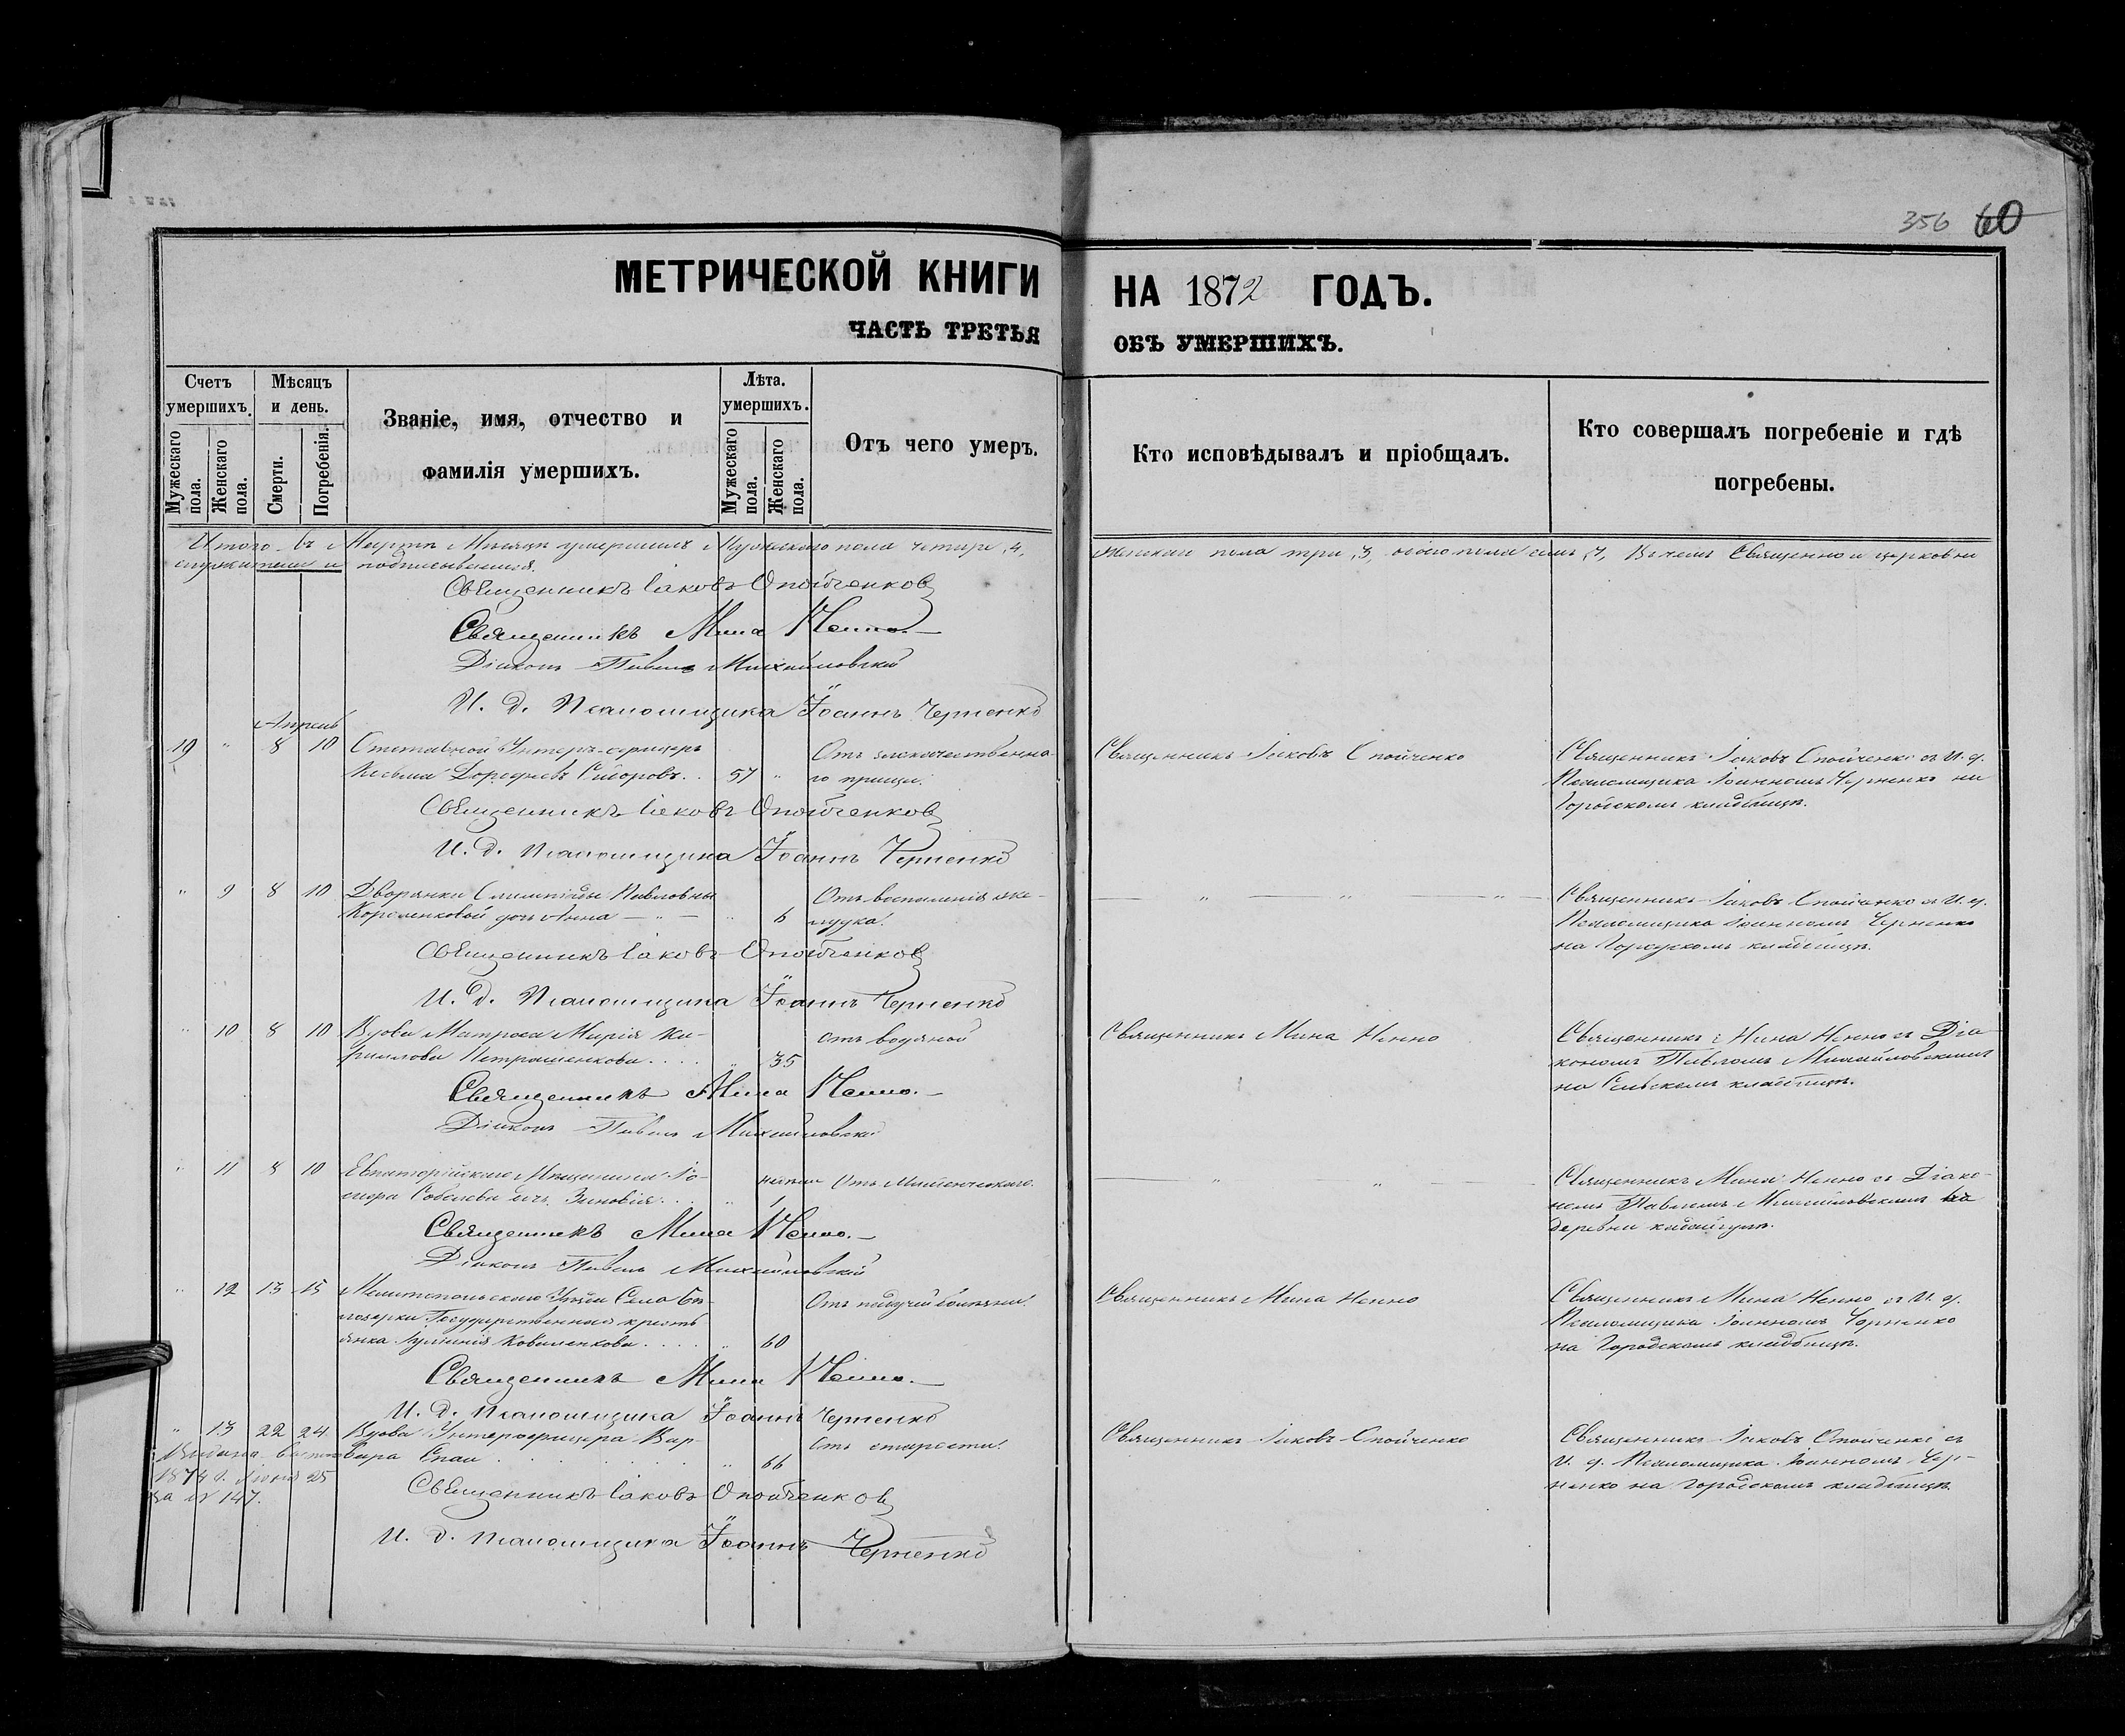 356 60
МЕТРИЧЕСКОЙ КНИГИ НА 1872 ГОДЪ.
ЧАСТЬ ТРЕТЬЯ ОБЪ УМЕРШИХЪ.
Счетъ умершихъ.
Мужескаго пола.
Женскаго пола.
Мѣсяцъ и день.
Смерти.
Погребенія.
Званіе, имя, отчество и
фамилія умершихъ.
Лѣта.
умершихъ.
Мужескаго пола.
Женскаго пола.
Отъ чего умеръ.
Кто исповѣдывалъ и пріобщалъ.
Кто совершалъ погребеніе и гдѣ
погребены.
Итого въ Мартѣ Мѣсяцѣ умершихъ Мужескаго пола четыре, 4, Женскаго пола три, 3, обоего пола семь, 7, Въ чемъ Священно и церковно
служители и подписываемся.
Священникъ Іаковъ Опойченковъ
Священникъ Мина Ненно.
Діаконъ Павелъ Михайловскій
И. д. Псаломщика Іоаннъ Черненко
Апрель
19 " 8 10 Отставной Унтеръ-офицеръ
Сидоровъ. . 57 "
Отъ злокачественна-
го прища.
Священникъ Іаковъ Опойченко
Священникъ Іаковъ Опойченко съ И. д.
Псаломщика Іоанномъ Черненко на
Городскомъ кладбищѣ.
Священникъ Іаковъ Опойченковъ
И. д. Псаломщика Іоаннъ Черненко
" 9 8 10 Дворянки Олимпіады Павловны
дочь Анна — " — " 6
Отъ воспаленія же-
лудка.
— " — "
Священникъ Іаковъ Опойченко съ И. д.
Псаломщика Іоанномъ Черненко
на Городскомъ кладбищѣ.
Священникъ Іаковъ Опойченковъ
И. д. Псаломщика Іоаннъ Черненко
" 10 8 10 Вдова Матроса Марія Ки-
риллова Петрашенкова . . . . " 35
отъ водяной
Священникъ Мина Ненно
Священникъ Мина Ненно съ Діа-
кономъ Павломъ Михайловскимъ
на Сельскомъ кладбищѣ.
Священникъ Мина Ненно.
Діаконъ Павелъ Михайловскій
" 11 8 10 Евпаторійскаго Мѣщанина
Зиновія . . . " 1
Отъ Младенческаго.
— " — "
Священникъ Мина Ненно съ Діако-
номъ Павломъ Михайловскимъ въ
деревни
Священникъ Мина Ненно.
Діаконъ Павелъ Михайловскій
" 12 13 15 Мелитопольскаго Уѣзда Села Бѣ-
лозерки Государственная кресть-
янка Коваленкова . . . . " 60
Отъ падучей болѣзни.
Священникъ Мина Ненно
Священникъ Мина Ненно съ И. д.
Псаломщика Іоанномъ Черненко
на Городскомъ кладбищѣ.
Священникъ Мина Ненно.
И. д. Псаломщика Іоаннъ Черненко
" 13 22 24 Вдова Унтерофицера Вар-
вара . . . . . . " 66
Отъ старости.
Священникъ Іаковъ Опойченко
Священникъ Іаковъ Опойченко съ
И. д. Псаломщика Іоанномъ Чер-
ненко на городскомъ кладбищѣ
1874 г. Іюня 25
за № 147.
Священникъ Іаковъ Опойченковъ
И. д. Псаломщика Іоаннъ Черненко